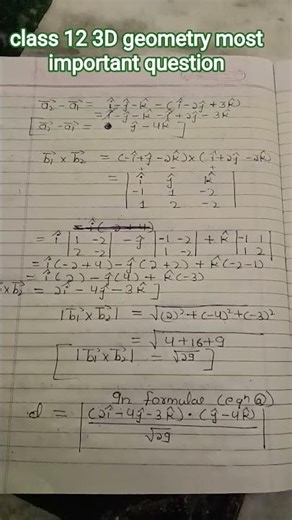 class 12 3D geometry most
important question
a₂ - a₁ = î - ĵ - k̂ - (î - 2ĵ + 3k̂)
= î - ĵ - k̂ - î + 2ĵ - 3k̂
[a₂ - a₁ = ĵ - 4k̂]
b₁ × b₂ = (-î + ĵ - 2k̂) × (î + 2ĵ - 2k̂)
= | î ĵ k̂ |
| -1 1 -2 |
| 1 2 -2 |
= î | 1 -2 | - ĵ | -1 -2 | + k̂ | -1 1 |
| 2 -2 | | 1 -2 | | 1 2 |
= î(-2+4) - ĵ(2+2) + k̂(-2-1)
= î(2) - ĵ(4) + k̂(-3)
× b₂ = 2î - 4ĵ - 3k̂]
|b₁ × b₂| = √(2)² + (-4)² + (-3)²
= √4 + 16 + 9
[|b₁ × b₂| = √29]
In formulae (eqn
d = | (2î - 4ĵ - 3k̂) · (ĵ - 4k̂) |
√29